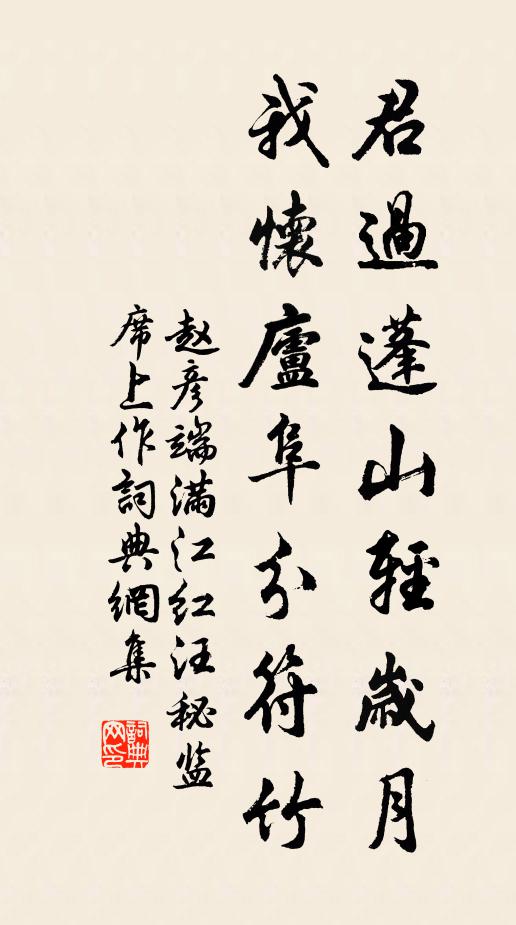 君過蓬山輕歲月
我懷廬阜分符竹
赵彦端滿江红汪秘监
席上作詞典網集
詞典网印